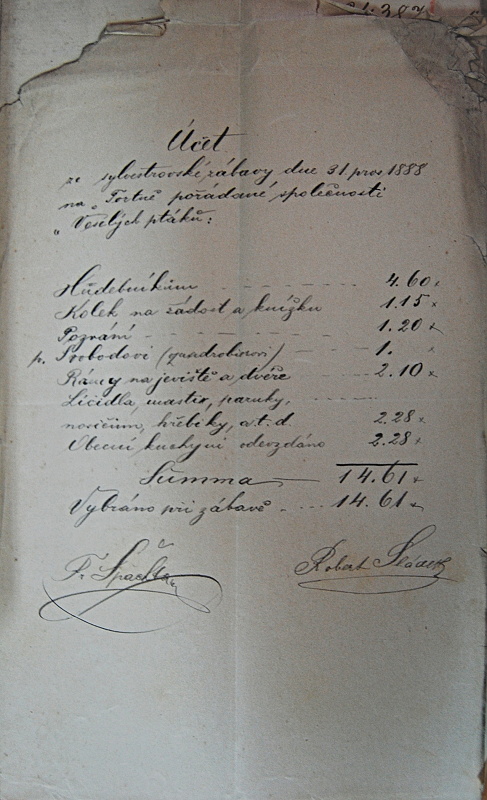 Účet
ze sylvestrovské zábavy dne 31 pros. 1888
na „Fortně pořádané společností
„Veselých ptáků:
Hudebníkům 4.60 x
Kolek na žádost a knížku 1.15 x
Pozvání 1.20 x
p. Svobodovi (quadrobinovi) 1. x
Rámy na jeviště a dvéře 2.10 x
Líčidla, mastix, paruky,
novičium, hřebíky, a.t.d. 2.28 x
Obecní kuchyni odevzdáno 2.28 x
Summa 14.61 x
Vybráno při zábavě 14.61 x
Fr. Robert